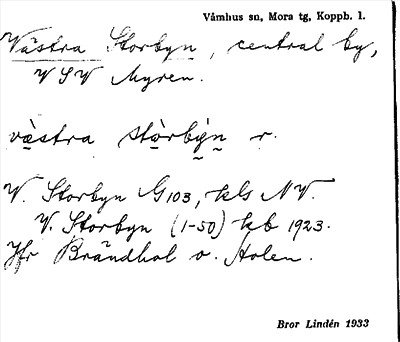 Våmhus sn, Mora tg, Koppb. l.
Västra Storbyn, central by,
VSV Myren.
västra stòrbýn r.
V. Storbyn G103, kls NV.
V. Storbyn (1-50) kb 1923.
Jfr Brändhol o. Holen.
Bror Lindén 1933